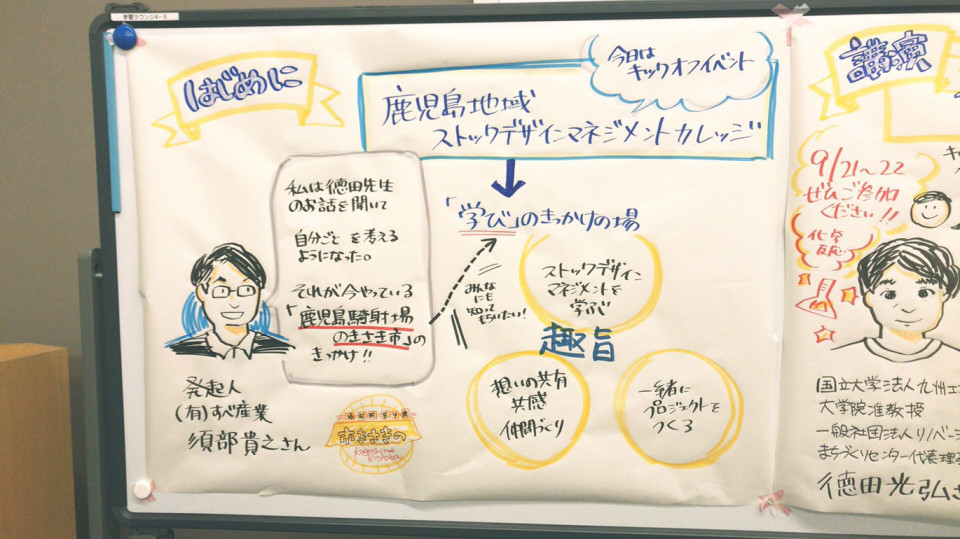 学習ラウンジ4-3
はじめに
今日は
キックオフイベント
鹿児島地域
ストックデザインマネジメントカレッジ
「学び」のきっかけの場
私は徳田先生
のお話を聞いて
自分ごとを考える
ようになった。
それが今やっている
「鹿児島騎射場
のきさき市」の
きっかけ!!
みんな
にも
知って
もらいたい!
ストックデザイン
マネジメントを
学ぶ
趣旨
想いの共有
共感
仲間づくり
一緒に
プロジェクトを
つくる
発起人
(有)すべ産業
須部貴之さん
市きさきの
講演
9/21~22
ぜひご参加
ください!!
化学
反応
国立大学法人九州工
大学院准教授
一般社団法人リノベー
まちづくりセンター代表理
徳田光弘さ